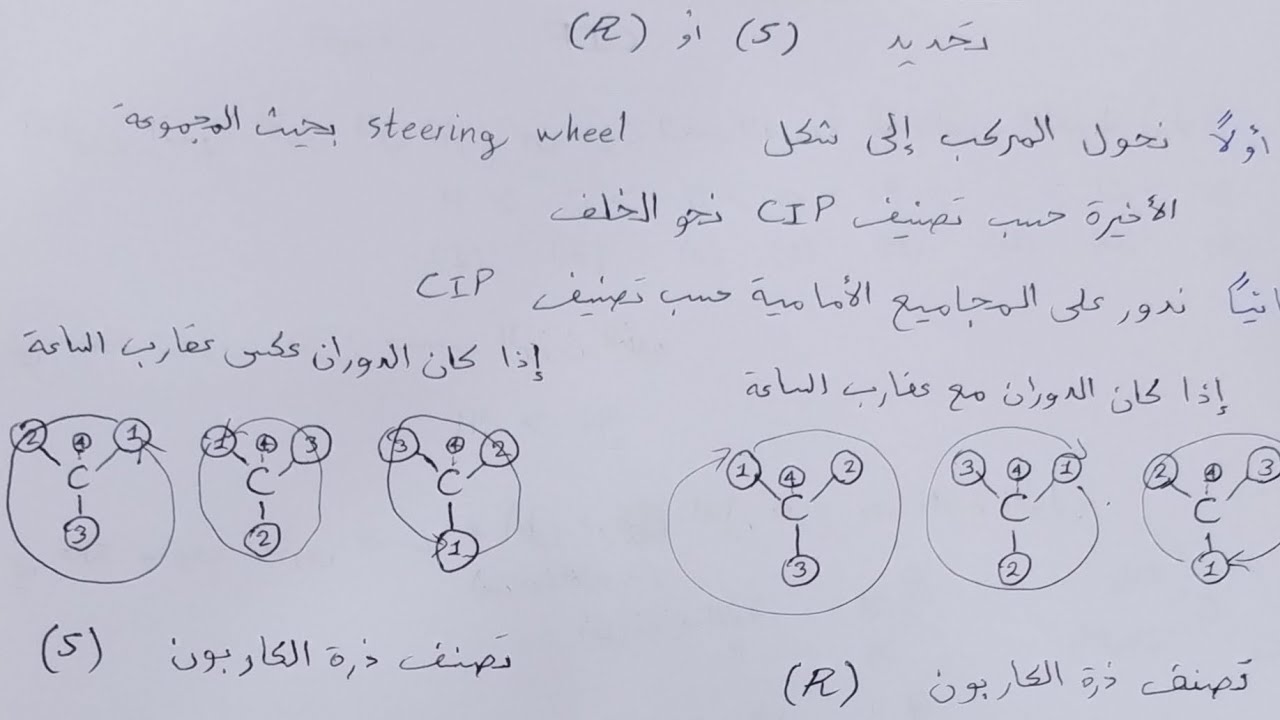 تحديد (S) أو (R)
أولاً نحول المركب إلى شكل steering wheel بحيث المجموعة
الأخيرة حسب تصنيف CIP نحو الخلف
انياً ندور على المجاميع الأمامية حسب تصنيف CIP
إذا كان الدوران مع عقارب الساعة
إذا كان الدوران عكس عقارب الساعة
2 4 1 1 4 3 3 4 2
C C C
3 2 1
1 4 2 3 4 1 2 4 3
C C C
3 2 1
تصنف ذرة الكاربون (R)
تصنف ذرة الكاربون (S)